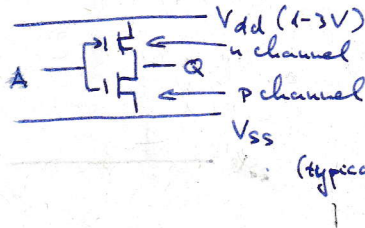 Vdd (1-3V)
n channel
A
Q
p channel
Vss
(typica